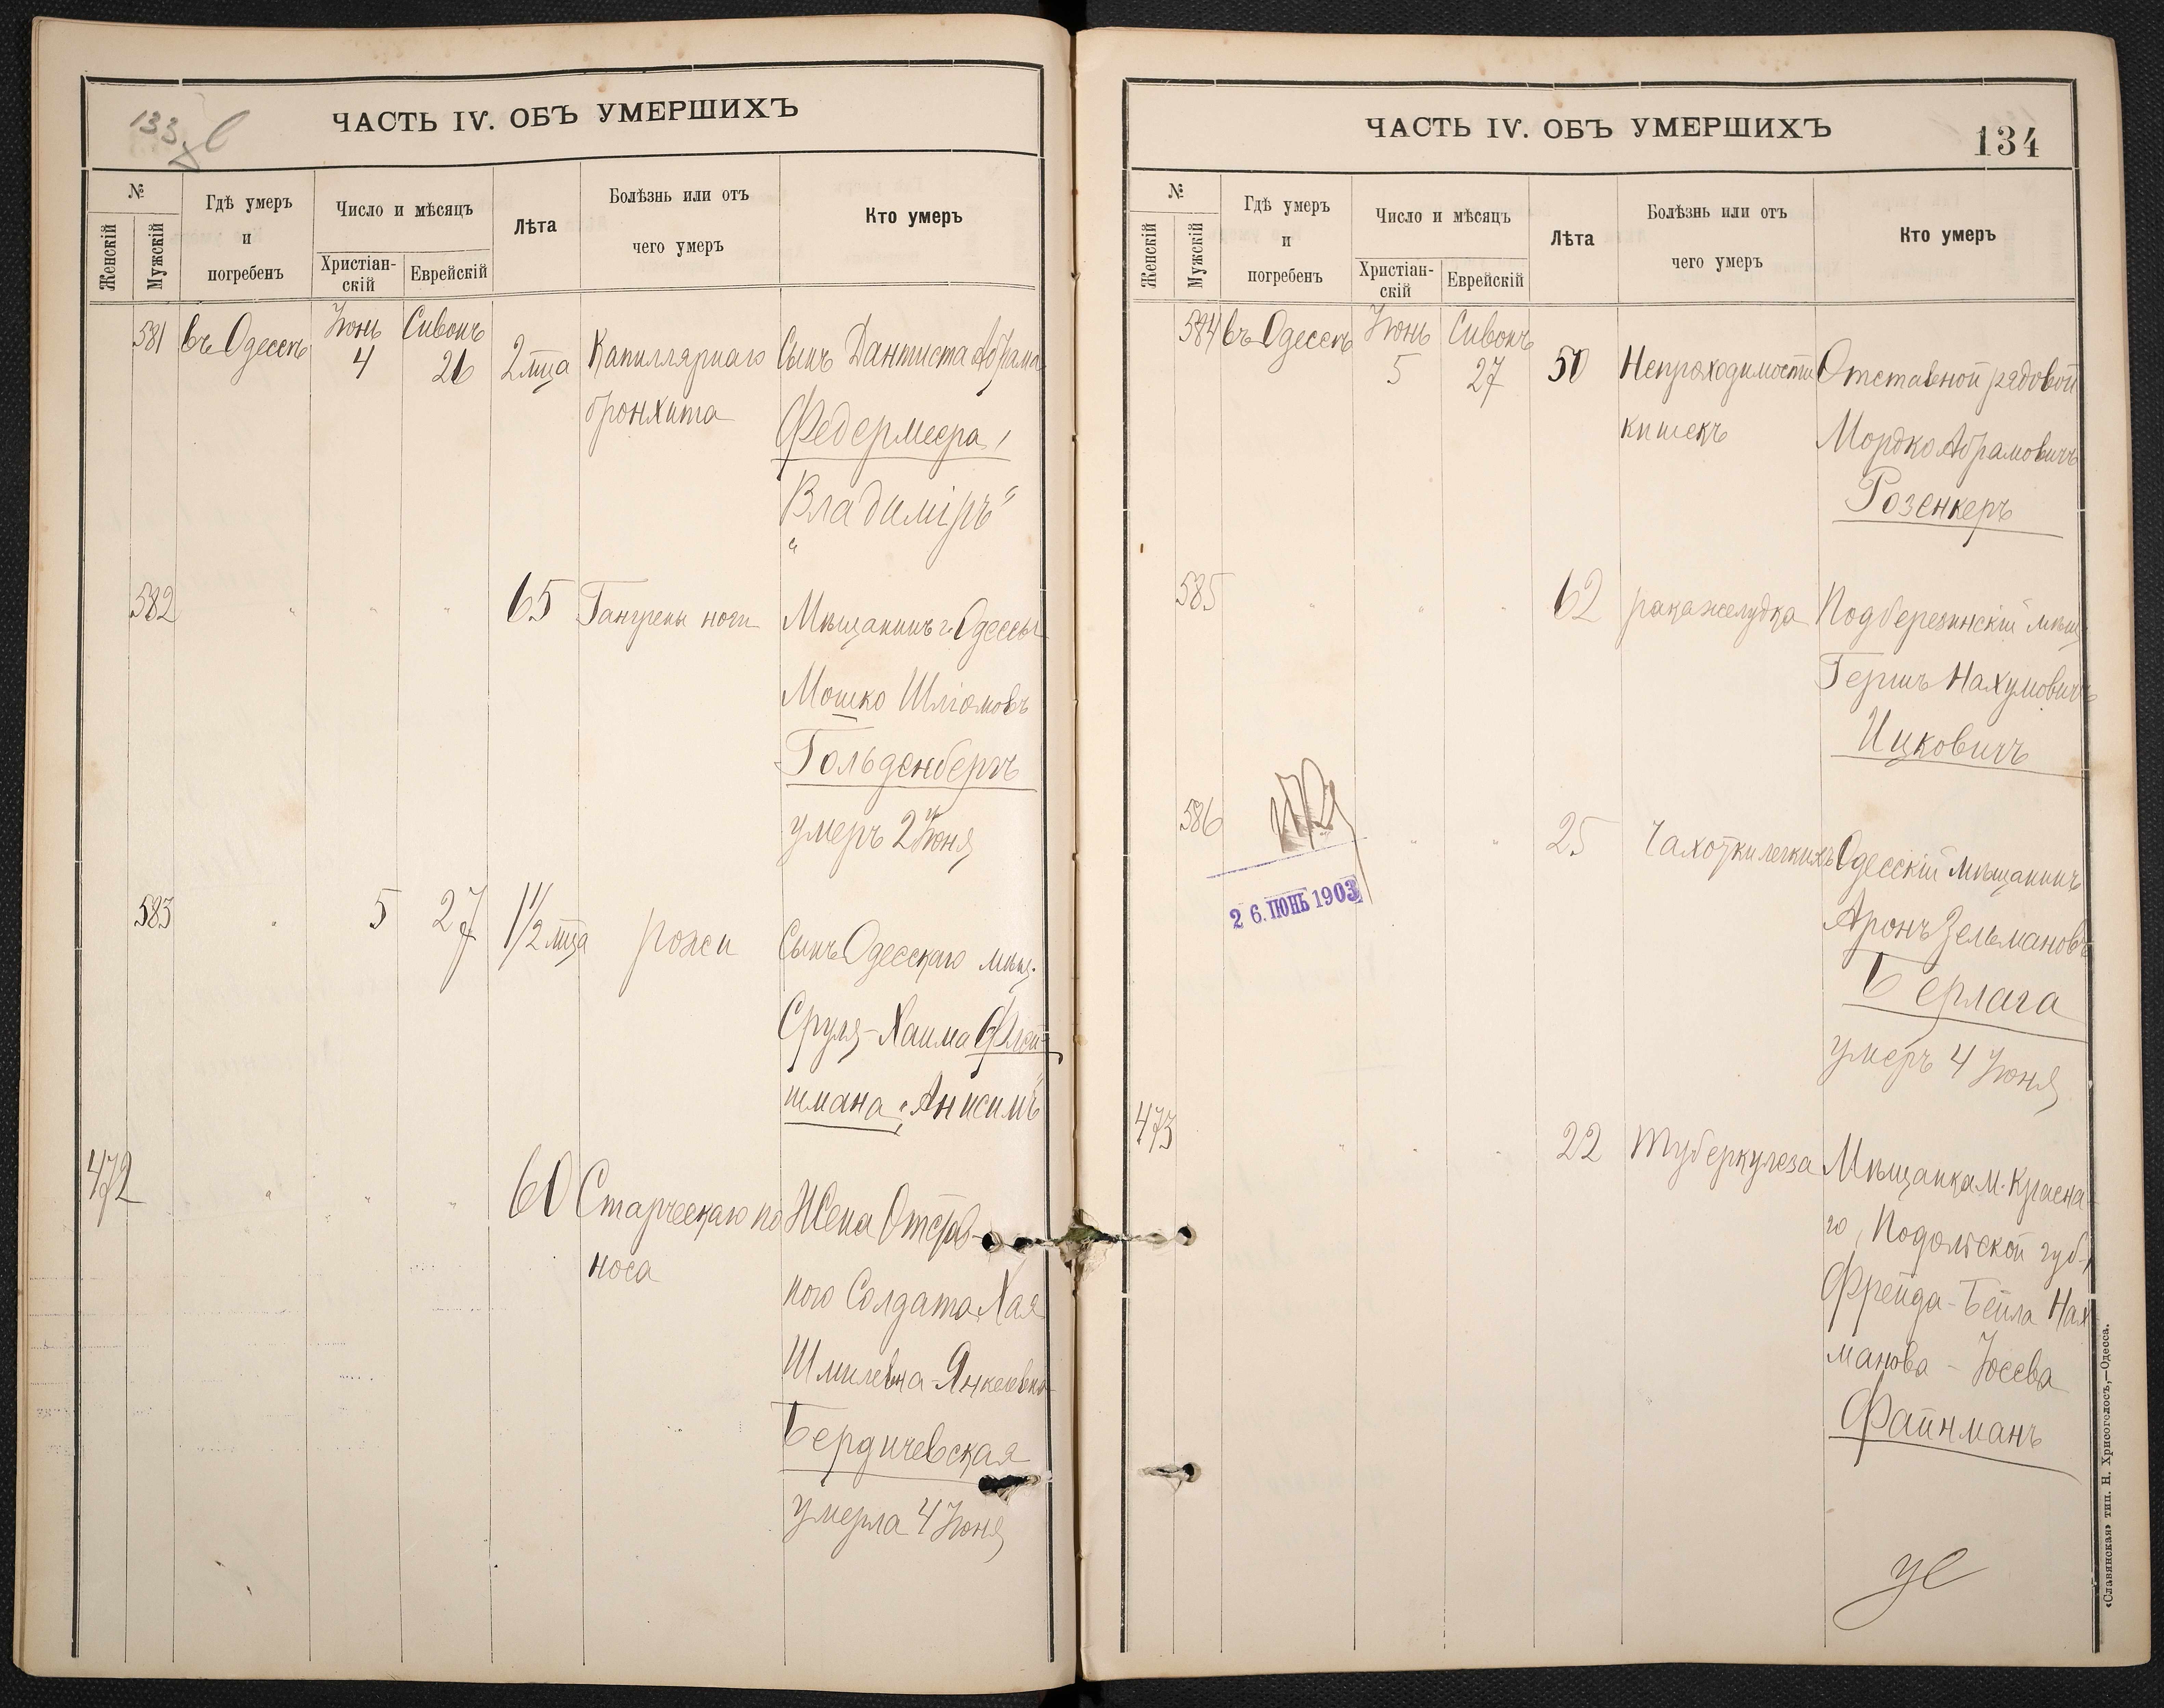 133
ЧАСТЬ IV. ОБЪ УМЕРШИХЪ
№
Женскій
Мужскій
Гдѣ умеръ
и
погребенъ
Число и мѣсяцъ
Христіан-
скій
Еврейскій
Лѣта
Болѣзнь или отъ
чего умеръ
Кто умеръ
581 въ Одессѣ Іюнь 4 Сивонъ 26 2 мца Капиллярнаго Сынъ Дантиста Абрама
бронхита Федермеера,
„Владиміръ“
582 " " " 65 Гангрены ноги Мѣщанинъ г. Одессы
Мошко Шліомовъ
Гольденбергъ
умеръ 2 Іюня
583 " 5 27 1 1/2 мца рожи Сынъ Одесскаго мѣщ.
Сруля-Хаима
шмана „Анисимъ“
472 " " " 60 Старческаго по Жена Отстав-
носа ного Солдата Хая
Шмилевна-Янкелевна
Бердичевская
умерла 4 Іюня
ЧАСТЬ IV. ОБЪ УМЕРШИХЪ
134
№
Женскій
Мужскій
Гдѣ умеръ
и
погребенъ
Число и мѣсяцъ
Христіан-
скій
Еврейскій
Лѣта
Болѣзнь или отъ
чего умеръ
Кто умеръ
584 въ Одессѣ Іюнь 5 Сивонъ 27 50 Непроходимости Отставной рядовой
кишекъ Мордко Абрамовичъ
Розенкеръ
585 " " " 62 рака желудка Подберезинскій мѣщ.
Гершъ Нахумовичъ
Ицковичъ
586 " " 25 Чахотки легкихъ Одесскій мѣщанинъ
26. ІЮНЬ 1903
Аронъ Зельмановъ
Берлага
умеръ 4 Іюня
473 " " " 22 туберкулеза Мѣщанка м. Красна-
го, Подольской губ.,
Фрейда-Бейла Нах
манова - Іосева
Файнманъ
«Славянская» тип. Н. Хрисогелосъ,—Одесса.